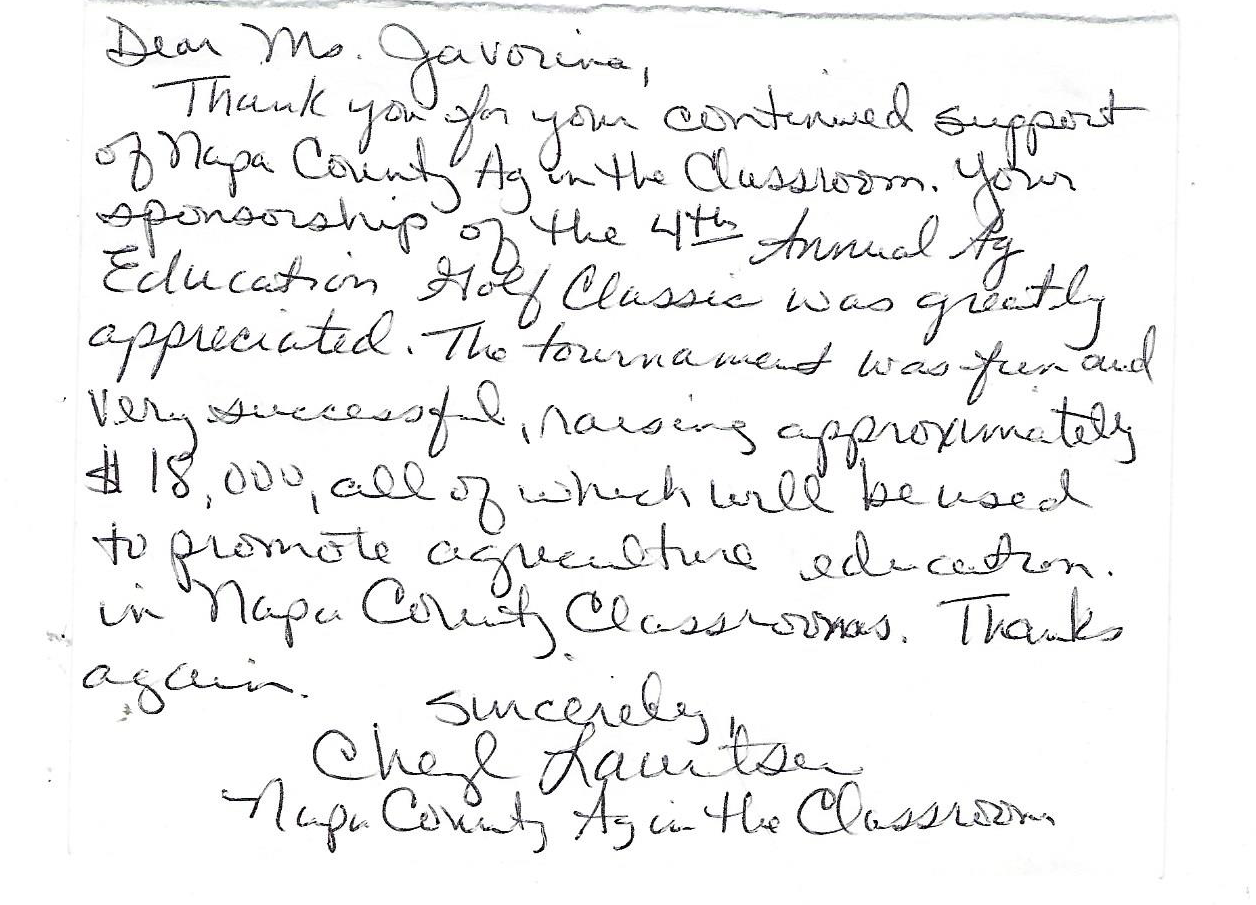 Dear Ms. Javorina,
Thank you for your continued support
of Napa County Ag in the Classroom. Your
sponsorship of the 4th Annual Ag
Education Golf Classic was greatly
appreciated. The tournament was fun and
very successful, raising approximately
$18,000, all of which will be used
to promote agriculture education.
in Napa County Classrooms. Thanks
again.
Sincerely,
Cheryl Lauritsen
Napa County Ag in the Classroom